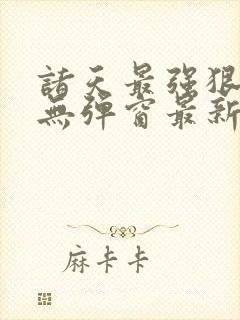 諸天最强狠
無彈窗最新
麻卡卡